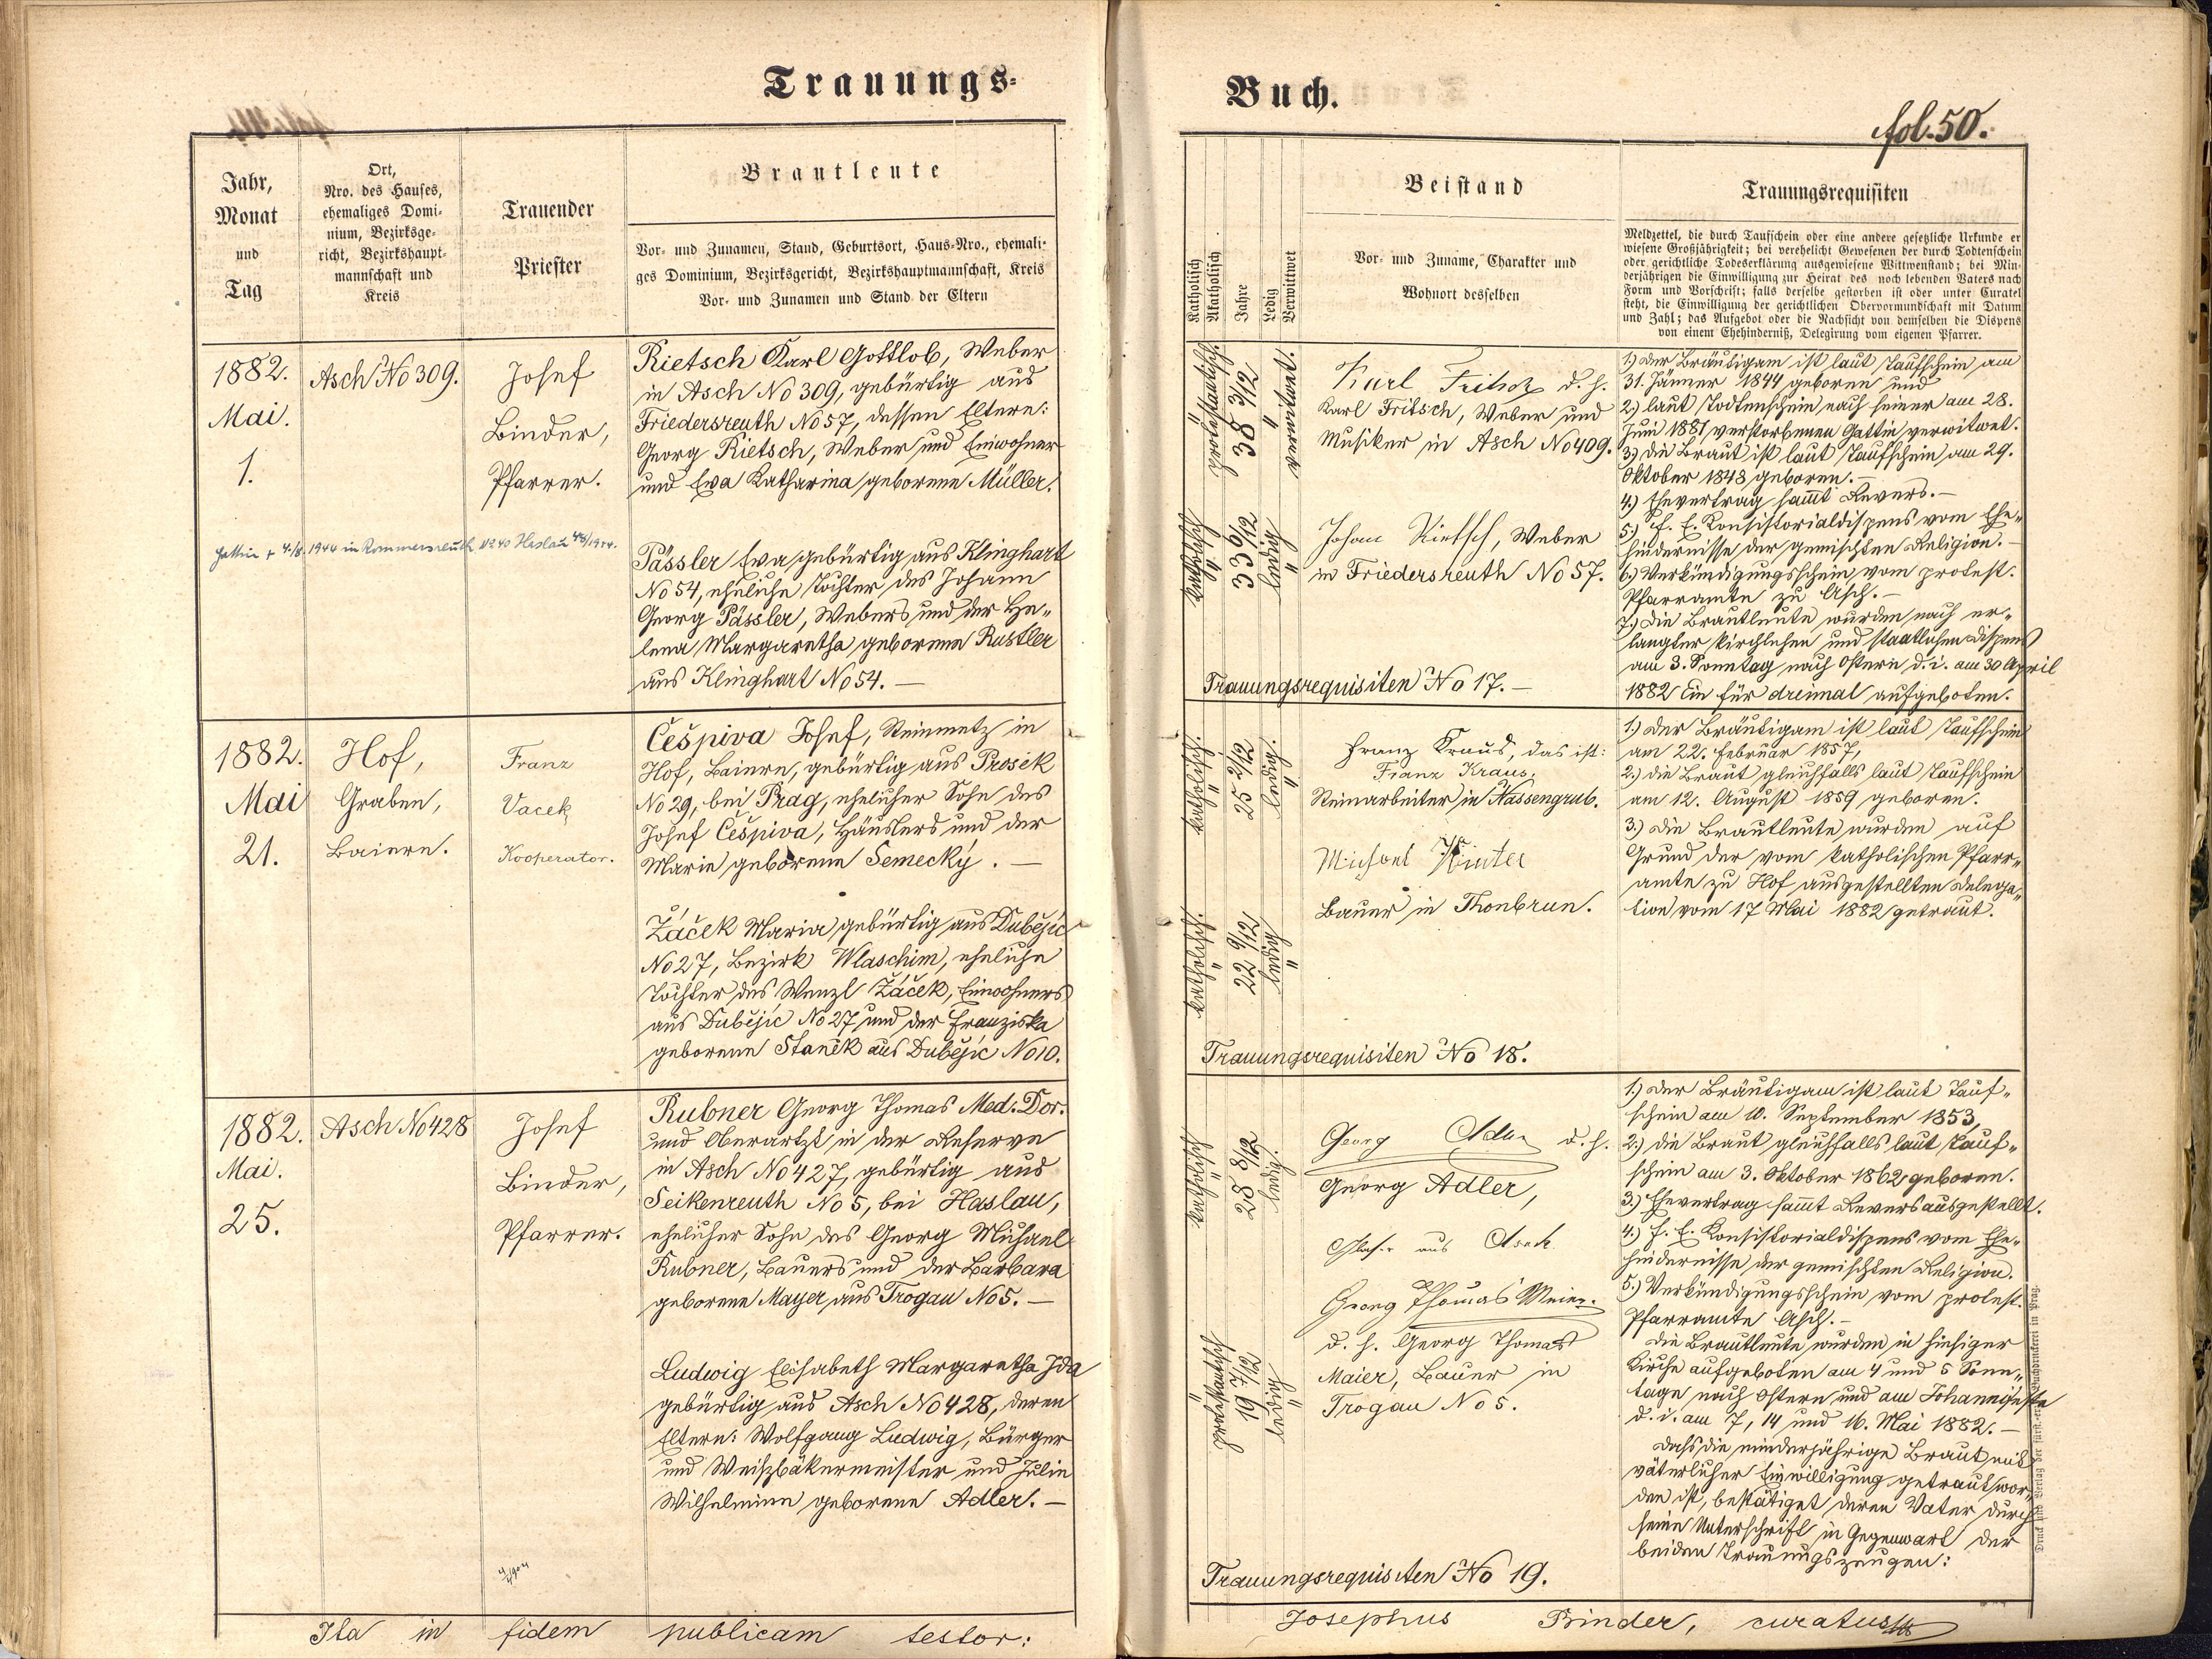 Trauungs-
Jahr,
Monat
und
Tag
Ort,
Nro. des Hauses,
ehemaliges Domi-
nium, Bezirksge-
richt, Bezirkshaupt-
mannschaft und
Kreis
Trauender
Priester
Brautleute
Vor- und Zunamen, Stand, Geburtsort, Haus-Nro., ehemali-
ges Dominium, Bezirksgericht, Bezirkshauptmannschaft, Kreis
Vor- und Zunamen und Stand der Eltern
1882.
Mai.
1.
Asch No 309.
Josef
Binder,
Pfarrer.
Rietsch Karl Gottlob, Weber
in Asch No 309, gebürtig aus
Friedersreuth No 57, dessen Eltern:
Georg Rietsch, Weber und Einwohner
und Eva Katharina geborene Müller.
Gattin + 4./8. 1944 in Rommersreuth No 40 Haslau 48/1944.
Pässler Eva gebürtig aus Klinghart
No 54, eheliche Tochter des Johann
Georg Pässler, Webers und der He„
lena Margaretha geborene Rustler
aus Klinghart No 54. —
1882.
Mai
21.
Hof,
Graben,
Baiern.
Franz
Vacek,
Kooperator.
Češpiva Josef, Steinmetz in
Hof, Baiern, gebürtig aus Prosek
No 29, bei Prag, ehelicher Sohn des
Josef Češpiva, Häuslers und der
Marie geborene Semecký. —
Žáček Maria gebürtig aus Dubějic
No 27, Bezirk Wlaschim, eheliche
Tochter des Wenzl Žáček, Einwohners
aus Dubějic No 27 und der Franziska
geborene Staněk aus Dubějic No 10.
1882.
Mai.
25.
Asch No 428
Josef
Binder,
Pfarrer.
Rubner Georg Thomas Med. Dor.
und Oberartzt in der Reserve
in Asch No 427, gebürtig aus
Seikenreuth No 5, bei Haslau,
ehelicher Sohn des Georg Michael
Rubner, Bauers und der Barbara
geborene Mayer aus Trogau No 5. —
Ludwig Elisabeth Margaretha Ida
gebürtig aus Asch No 428, deren
Eltern: Wolfgang Ludwig, Bürger
und Weißbäkermeister und Julie
Wilhelmine geborene Adler. —
Ita in fidem publicam testor:
Buch.
fol. 50.
Katholisch
Akatholisch
Jahre
Ledig
Verwittwet
Beistand
Vor- und Zuname, Charakter und
Wohnort desselben
Trauungsrequisiten
Meldzettel, die durch Taufschein oder eine andere gesetzliche Urkunde er
wiesene Großjährigkeit; bei verehelicht Gewesenen der durch Todtenschein
oder gerichtliche Todeserklärung ausgewiesene Wittwenstand; bei Min-
derjährigen die Einwilligung zur Heirat des noch lebenden Vaters nach
Form und Vorschrift; falls derselbe gestorben ist oder unter Curatel
steht, die Einwilligung der gerichtlichen Obervormundschaft mit Datum
und Zahl; das Aufgebot oder die Nachsicht von demselben die Dispens
von einem Ehehinderniß, Delegirung vom eigenen Pfarrer.
protestantisch.
38 3/12
verwitwet.
katholisch
33 6/12
ledig
Karl Fritsch d. h.
Karl Fritsch, Weber und
Musiker in Asch No 409.
Johann Rietsch, Weber
in Friedersreuth No 57.
Trauungsrequisiten No 17. —
1.) Der Bräutigam ist laut Taufschein am
31. Jänner 1844 geboren und
2.) laut Todtenschein nach seiner am 28.
Juni 1881 verstorbenen Gattin verwitwet.
3.) die Braut ist laut Taufschein am 29.
Oktober 1848 geboren. —
4.) Ehevertrag sammt Revers. —
5.) f. e. Konsistorialdispens vom Ehe„
hindernisse der gemischten Religion. —
6.) Verkündigungsschein vom protest.
Pfarramte zu Asch. —
7.) Die Brautleute wurden nach er„
langter kirchlichen und staatlichen Dispens
am 3. Sonntag nach Ostern d. i. am 30 April
1882 Ein für dreimal aufgeboten.
katholisch.
25 2/12
ledig.
katholisch.
22 9/12
ledig
Franz Kraus, das ist:
Franz Kraus.
Steinarbeiter in Nassengrub.
Michael Künter
Bauer in Thonbrun.
Trauungsrequisiten No 18.
1.) Der Bräutigam ist laut Taufschein
am 22. Februar 1857,
2.) die Braut gleichfalls laut Taufschein
am 12. August 1859 geboren.
3.) Die Brautleute wurden auf
Grund der vom katholischen Pfarr„
amte zu Hof ausgestellten Delega„
tion vom 17 Mai 1882 getraut.
katholisch
28 8/12
ledig.
protestantisch
19 7/12
ledig
Georg Adler d. h.
Georg Adler,
Glaser aus Asch
Georg Thomas Meier.
d. h. Georg Thomas
Maier, Bauer in
Trogau No 5.
Trauungsrequisiten No 19.
1.) Der Bräutigam ist laut Tauf„
schein am 10. September 1853,
2.) die Braut gleichfalls laut Tauf„
schein am 3. Oktober 1862 geboren.
3.) Ehevertrag sammt Revers ausgestellt.
4.) f. e. Konsistorialdispens vom Ehe„
hindernisse der gemischten Religion.
5.) Verkündigungsschein vom protest.
Pfarramte Asch. —
Die Brautleute wurden in hiesiger
Kirche aufgeboten am 4 und 5 Sonn„
tage nach Ostern und am Johannifeste
d. i. am 7, 14 und 16. Mai 1882. —
Daß die minderjährige Braut mit
väterlicher Einwilligung getraut wor„
den ist, bestätiget deren Vater durch
seine Unterschrift in Gegenwart der
beiden Trauungszeugen:
Josephus Binder, curatus